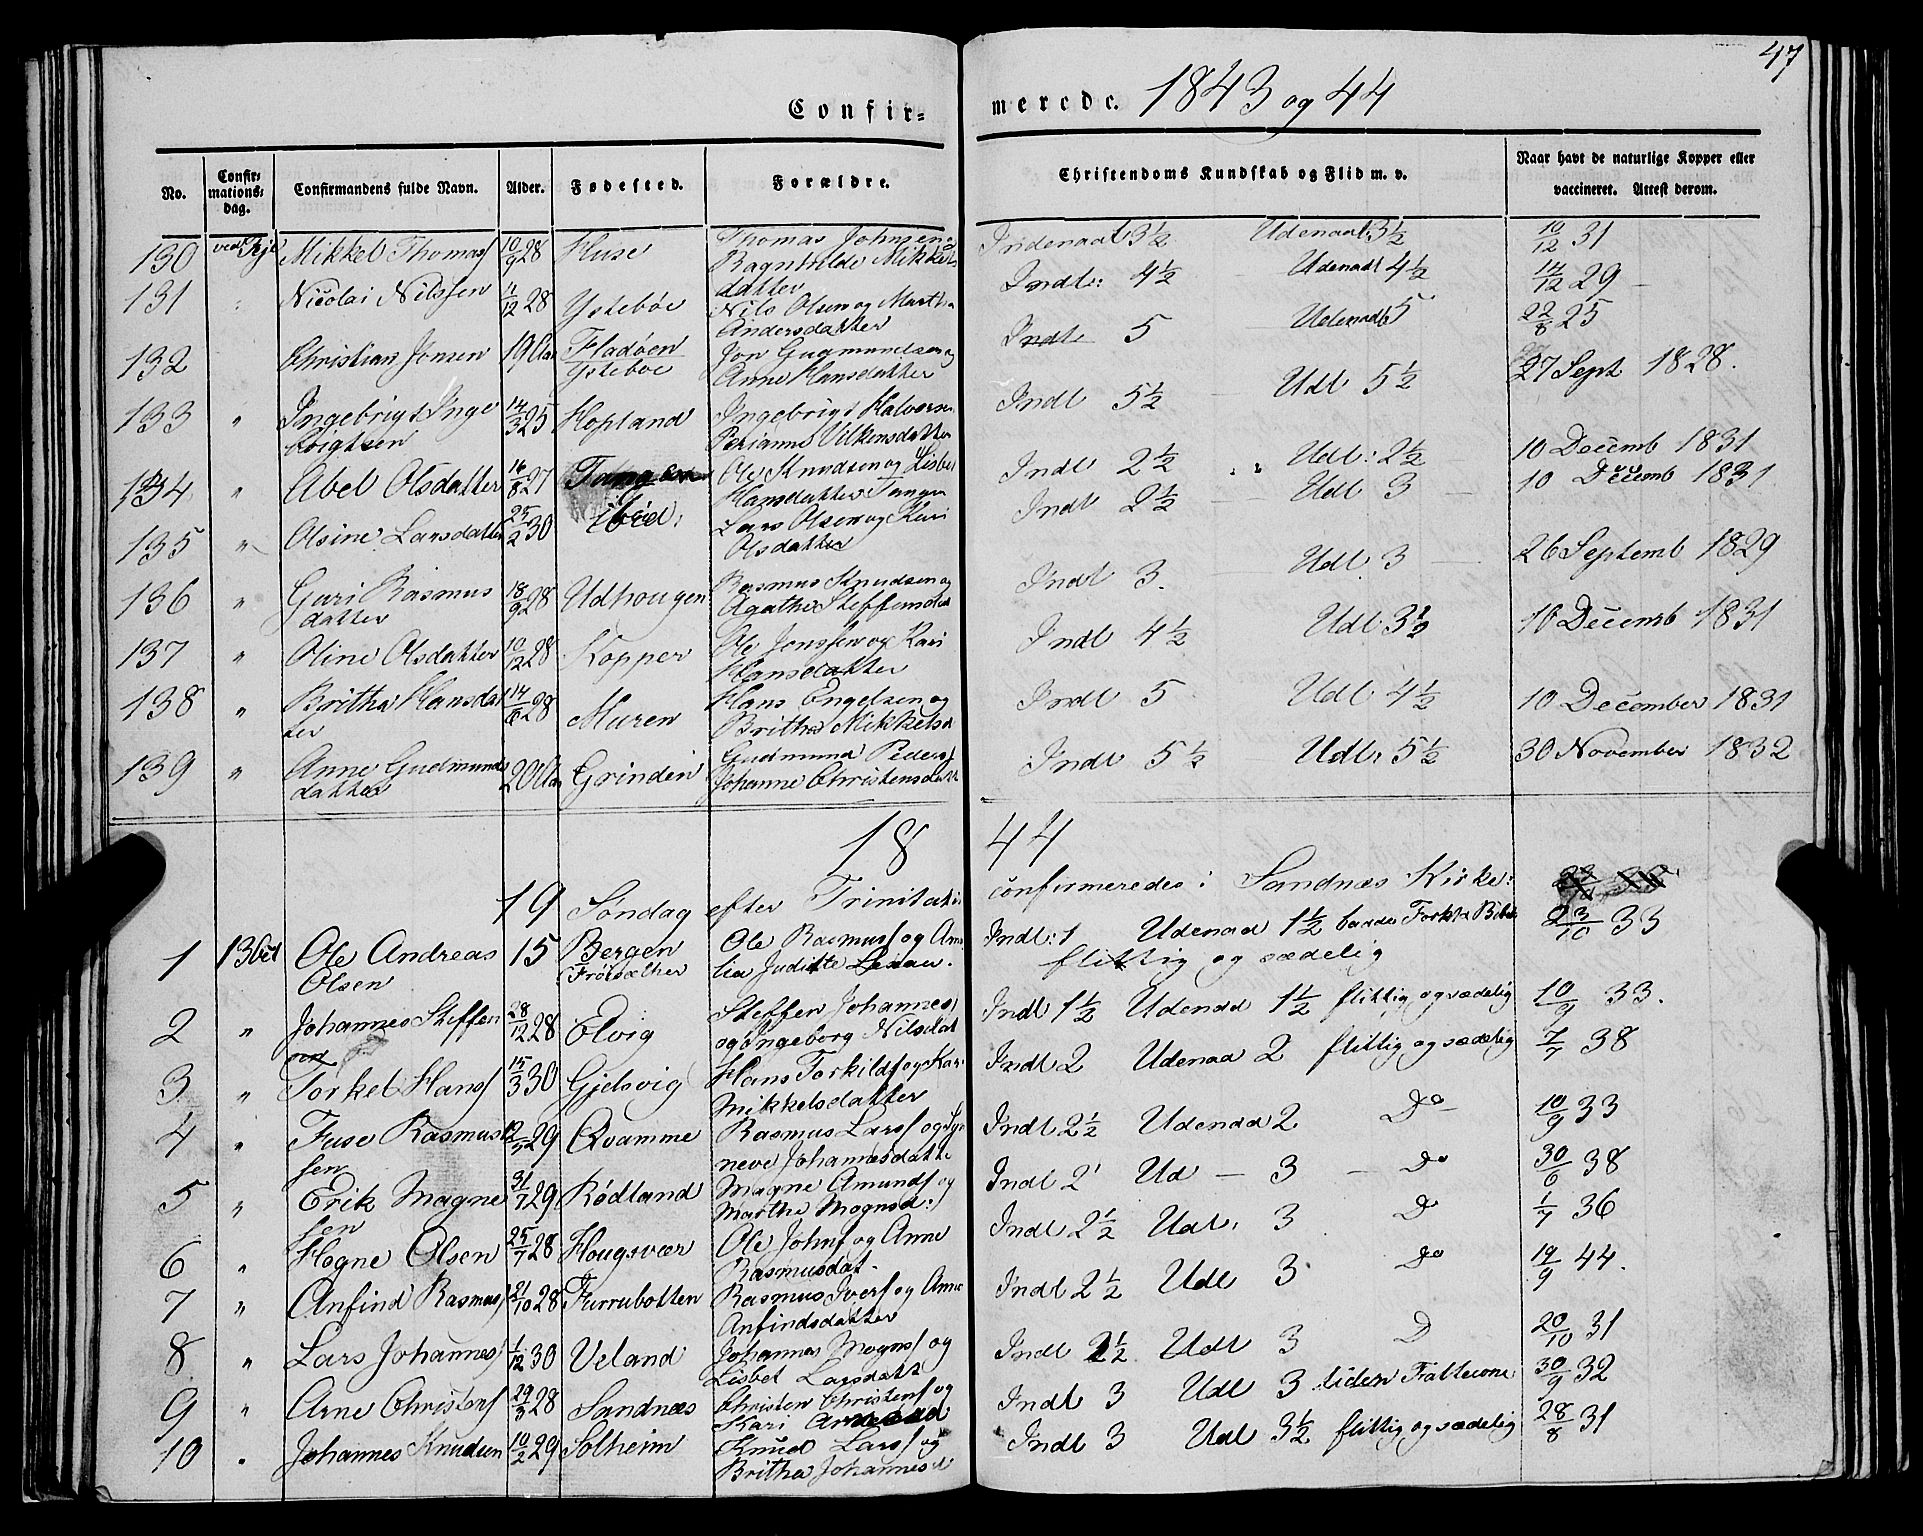 47
Confir-merede. 1843 og 44
No. Confir-mations-dag. Confirmandens fulde Navn. Alder. Fødested. Forældre. Christendoms Kundskab og Flid m. v. Naar havt de naturlige Kopper eller vaccineret. Attest derom.
130 Mikkel Thomass 10/9 28 Huse Thomas Johnsen Ragnhilde Mikkels datter Indenaat 3½ Udenaat 3½ 10/12 31
131 Nicolai Nilssen 11/12 28 Ystebøe Nils Olsen og Martha Andersdatter Indt: 4½ Udenadt 4½ 14/12 29
132 Christian Jonsen 19 Aar Fladøen Ystebøe Jon Gudmundsen og Anne Hansdatter Indt 5 Udenadt 5 22/8 25
133 " Ingebrigt Inge brigtsen 14/3 25 Hopland Ingebrigt Halvorsen Perianne Vilkensdatter Indt 5½ Udt 5½ 27 Sept 1828.
134 " Abel Olsdatter 16/8 27 Ole Knudsen og Lisbet Hansdatter Tangen Indt 2½ Udt: 2½ 10 Decemb 1831
135 " Olsine Larsdatter 25/2 30 ibid: Lars Olsen og Kari Olsdatter Indt 2½ Udt 3 10 Decemb 1831
136 " Guri Rasmus datter 18/9 28 Udhougen Rasmus Knudsen og Agatha Steffensdat Indt 3. Udt 3 26 Septemb 1829
137 " Oline Olsdatter 10/12 28 Kopper Ole Jonssen og Kari Hansdatter Indt 4½ Udt 3½ 10 Decemb 1831
138 " Britha Hansdat ter 14/6 28 Muren Hans Engelsen og Britha Mikkelsd Indt 5 Udt 4½ 10 December 1831
139 " Anne Gudmunds datter 20 Aar Grinden Gudmund Peders Johanne Christensdatt Indt 5½ Udt: 5½ 30 November 1832
18 44
19 Søndag efter Trinitatis confirmeredes i Sandnæs Kirke:
1 13 Oct Ole Andreas Olsen 15 Bergen Ole Rasmuss og Ama lia Juditte Indt: 1 Udenad 1½ flittig og sædelig 23/10 33
2 " Johannes Steffen sen 28/12 28 Elvig Steffen Johannes og Ingeborg Nilsdat Indt 1½ Udenad 1½ flittig og sædelig 10/9 33.
3 " Torkel Hans 15/3 30 Gjelsvig Hans Torkilds og Kari Mikkelsdatter Indt 2 Udenad 2 flittig og sædelig 7/7 38
4 " Fuse Rasmus sen 12/7 29 Qvamme Rasmus Larss og Syn neve Johannesdatte Indt 2½ Udenad 2 Do 10/9 33
5 " Erik Magne sen 31/7 29 Rødland Magne Amunds og Martha Mognsd: Indt 2 Ud — 3 — Do 30/6 38
6 " Hogne Olsen 25/7 28 Hougsvær Ole Johns og Anne Rasmusdat. Indt 2½ Udt. 3 Do 1/7 36
7 " Anfind Rasmus 21/10 28 Furrubotten Rasmus Ivers og Anne Anfindsdatter Indt 2½ Udt 3 Do 19/9 44.
8 " Lars Johannes 1/12 30 Veland Johannes Mogns og Lisbet Larsdatt Indt 2½ Udt 3 D 20/10 31
9 " Arne Christens 29/3 28 Sandnæs Christen Christens og Kari Indt 3 Udt 3 liden Fatteevne 30/9 32
10 " Johannes Knudsen 10/2 29 Solheim Knud Larss og Britha Johannesd Indt 3 Udt 3½ flittig og sædelig 28/8 31